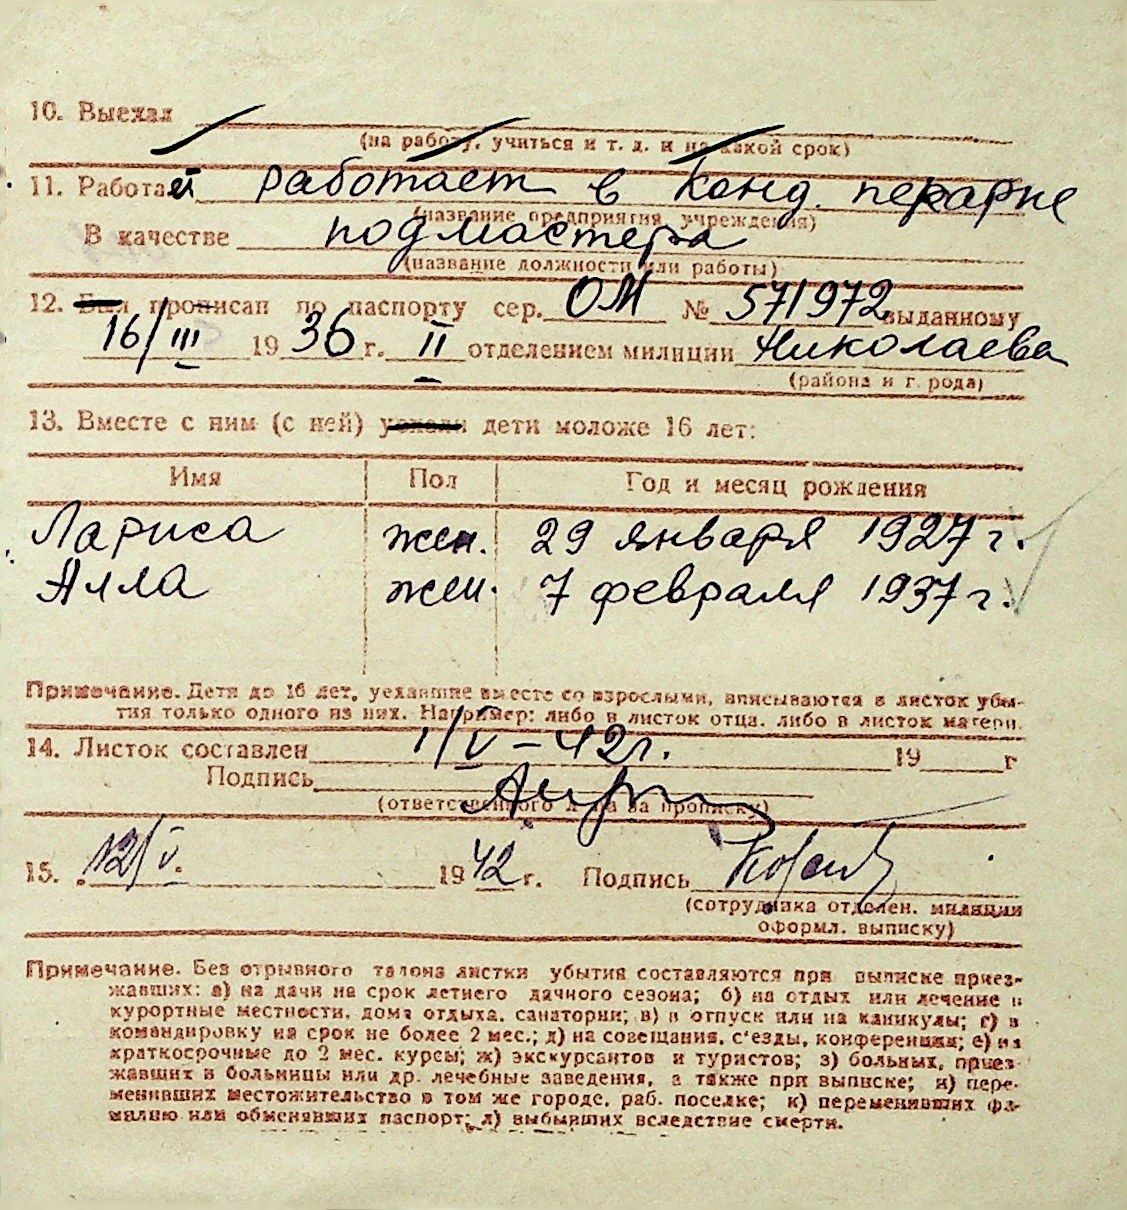 10. Выехал
(на работу, учиться и т. д. и на какой срок)
11. Работает работает в Конд. пекарне
(название предприятия, учреждения)
В качестве подмастера
(название должности или работы)
12. Был прописан по паспорту сер. ОМ № 571972 выданному
16/III 1936 г. II отделением милиции Николаева
(района и города)
13. Вместе с ним (с ней) уехали дети моложе 16 лет:
Имя Пол Год и месяц рождения
Лариса жен. 29 января 1927 г.
Алла жен. 7 февраля 1937 г.
Примечание. Дети до 16 лет, уехавшие вместе со взрослыми, вписываются в листок убы-
тия только одного из них. Например: либо в листок отца, либо в листок матери.
14. Листок составлен 1/V – 42 г. 19 г
Подпись
(ответственного л-ца за прописку)
15. 12/V. 1942 г. Подпись
(сотрудника отделен. милиции
оформл. выписку)
Примечание. Без отрывного талона листки убытия составляются при выписке приез-
жавших: а) на дачи на срок летнего дачного сезона; б) на отдых или лечение в
курортные местности, дома отдыха, санатории; в) в отпуск или на каникулы; г) в
командировку на срок не более 2 мес.; д) на совещания, с'езды, конференции; е) на
краткосрочные до 2 мес. курсы; ж) экскурсантов и туристов; з) больных, приез-
жавших в больницы или др. лечебные заведения, а также при выписке; и) пере-
менивших местожительство в том же городе, раб. поселке; к) переменивших фа-
милию или обменявших паспорт; л) выбывших вследствие смерти.